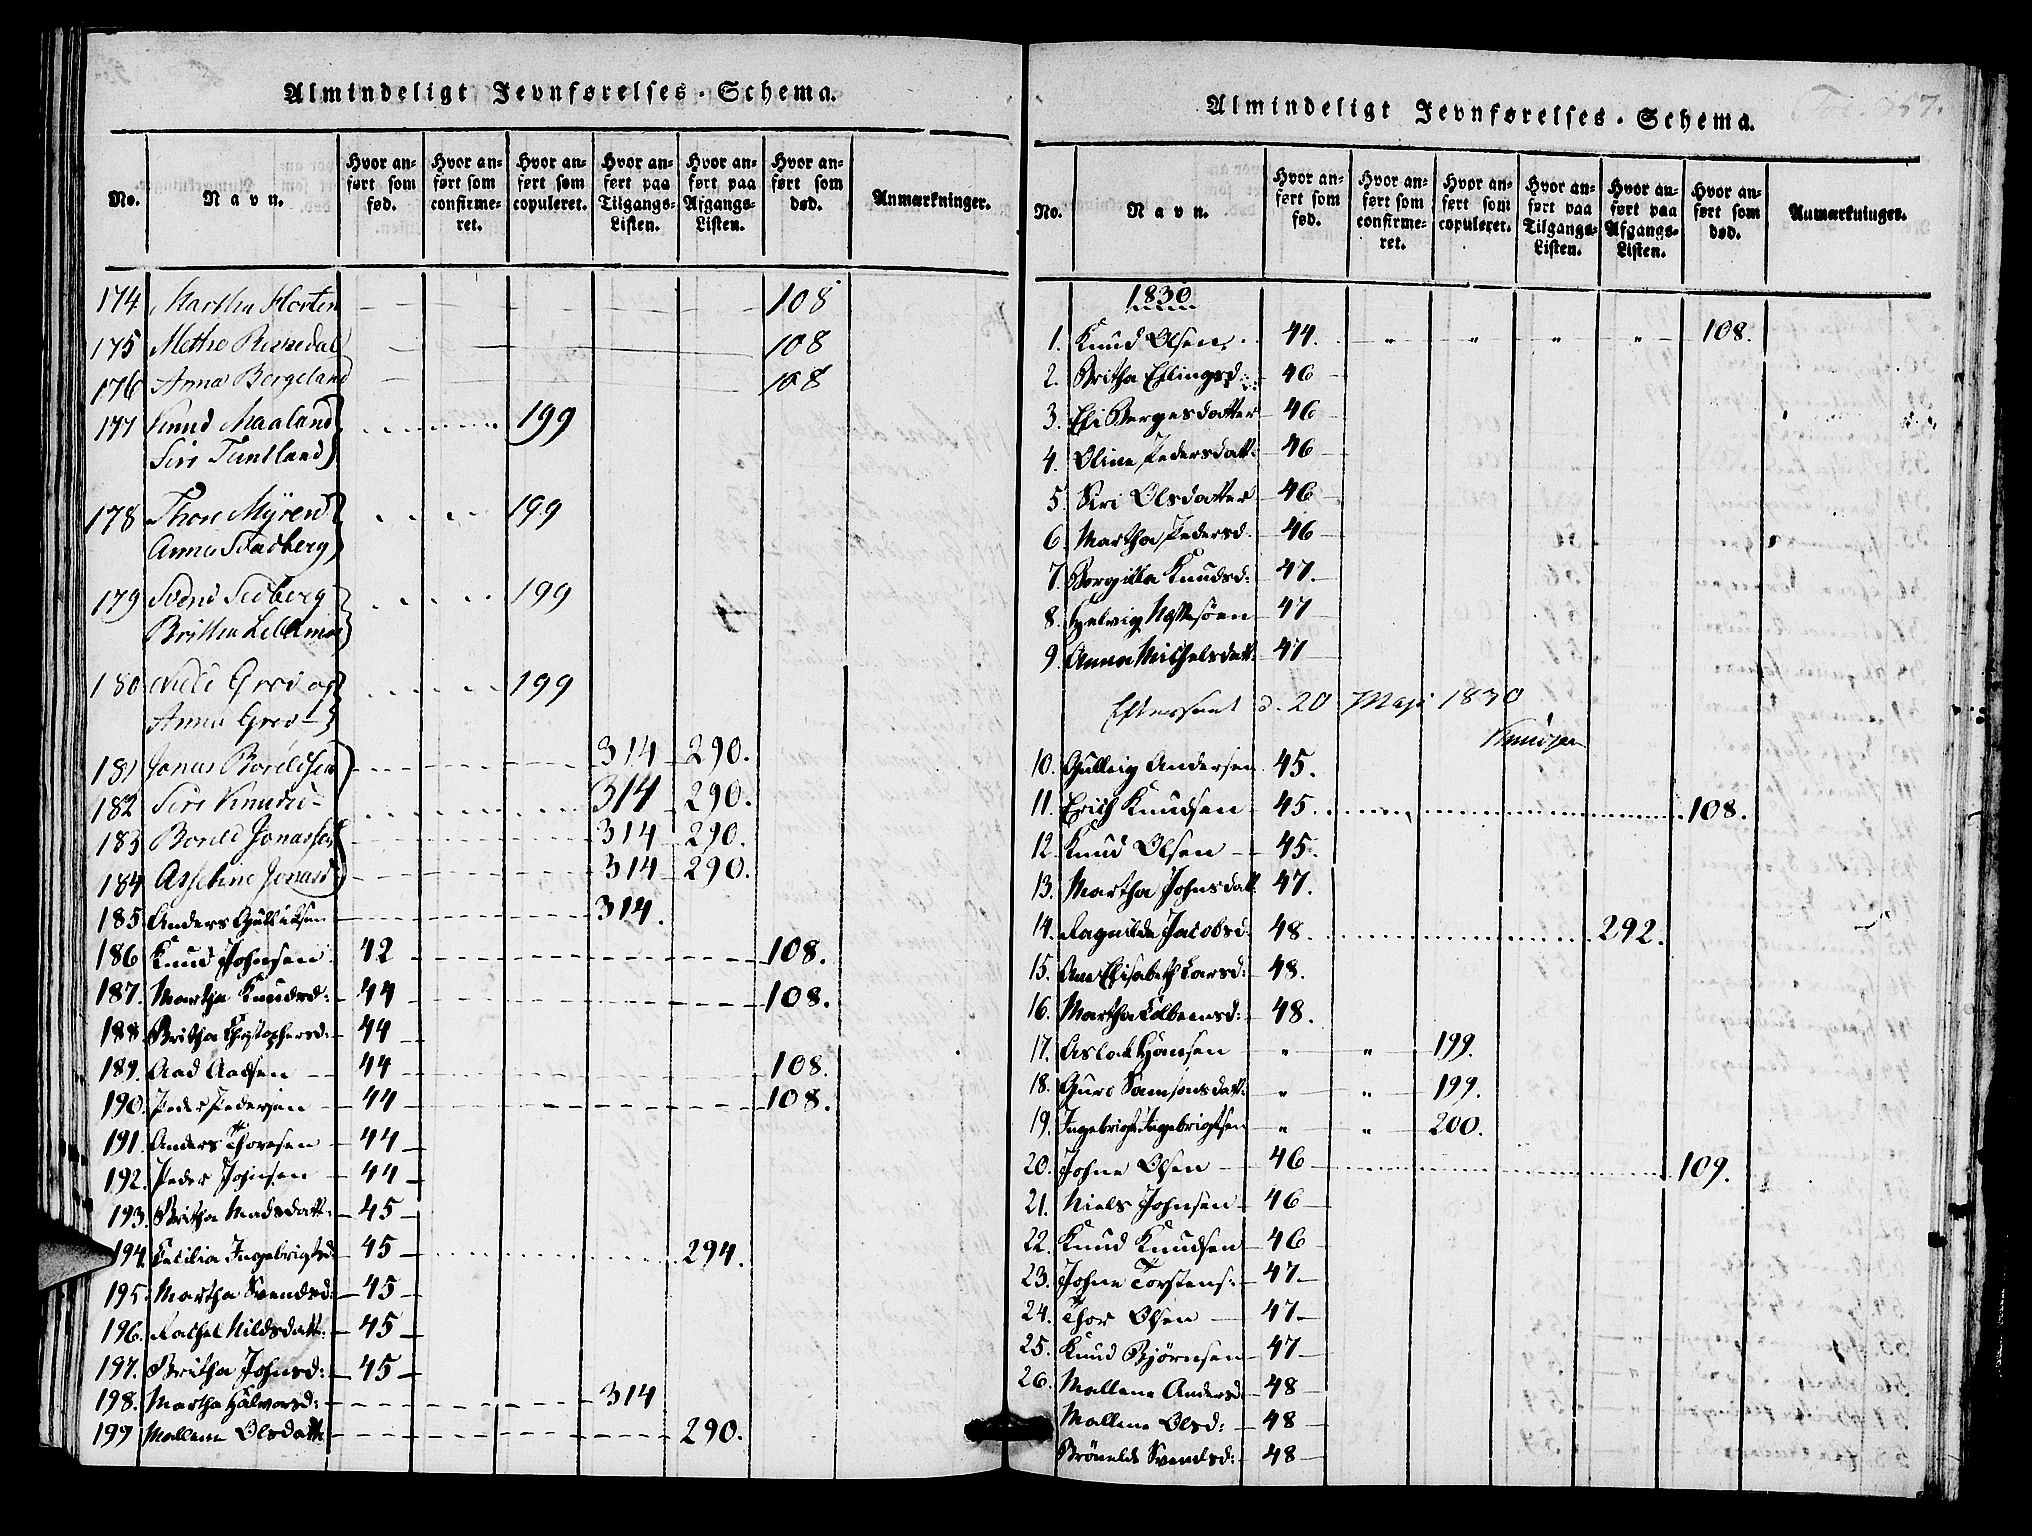 Almindeligt Jevnførelses-Schema.
No. Navn. Hvor anført som fød. Hvor anført som confirmeret. Hvor anført som copuleret. Hvor anført paa Tilgangs-Listen. Hvor anført paa Afgangs-Listen. Hvor anført som død. Anmærkninger.
174 Martha Horten 108
175 Methe 108
176 Anna Bergeland 108
177 Knud Maaland 199
Siri Tuntland
178 Thore Myren 199
Anna Svadberg
179 Svend Sedberg 199
Britha
180 Nils Grov og 199
Anna Grov
181 Jonas Boreldsen 314 290.
182 Siri Knudsd 314 290.
183 Boreld Jonassen 314 290.
184 Asseline Jonasd 314 290.
185 Anders Gulliksen 314.
186 Knud Johnsen 42 108.
187. Martha Knudsd: 44 108.
188. Britha Christophersd: 44
189. Aad Aadsen 44 108.
190. Peder Pedersen 44 108.
191. Anders Thoresen 44
192. Peder Johnsen 44
193. Britha Madsdatt: 45
194. Cecilia Ingebrigtsd: 45 294.
195. Martha Svendsd: 45
196. Rachel Nilsdatt: 45
197. Britha Johnsd: 45
198. Martha Halvorsd: 314
199 Mallene Olsdatt: 290.
Almindeligt Jevnførelses-Schema.
No. Navn. Hvor anført som fød. Hvor anført som confirmeret. Hvor anført som copuleret. Hvor anført paa Tilgangs-Listen. Hvor anført paa Afgangs-Listen. Hvor anført som død. Anmærkninger.
1830
1. Knud Olsen 44. " " " " 108.
2. Britha Erlingsd: 46
3. Eli Bergesdatter 46
4. Oline Pedersdatt: 46
5. Siri Olsdatter 46
6. Martha Pedersd. 46
7. Borgilla Knudsd: 47.
8. Helvig 47
9. Anna Michelsdatt: 47
Efterseet d. 20 Maji 1830
Knudsen
10. Gulleig Andersen 45.
11. Erich Knudsen 45. 108.
12. Knud Olsen 45.
13. Martha Johnsdatt. 47.
14. Ragnilde Jacobsd: 48. 292.
15. Ane Elisabeth Larsd: 48.
16. Martha Colbensd: 48.
17. Aslak Hansen " " 199.
18. Guro Samsonsdatt: " " 199.
19. Ingebrigt Ingebrigtsen " " 200.
20. Johne Olsen 46 109.
21. Niels Johnsen 46
22. Knud Knudsen 46
23. Johne Torstens: 47
24. Thor Olsen 47
25. Knud Bjørnsen 47
26. Mallene Andersd: 48
Mallene Olsd: 48
Brönelde Svendsd: 48